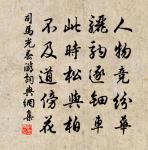 人物竞纷华
骊驹逐钿车
此时松与柏
不及道傍花
司马光春游词典网集